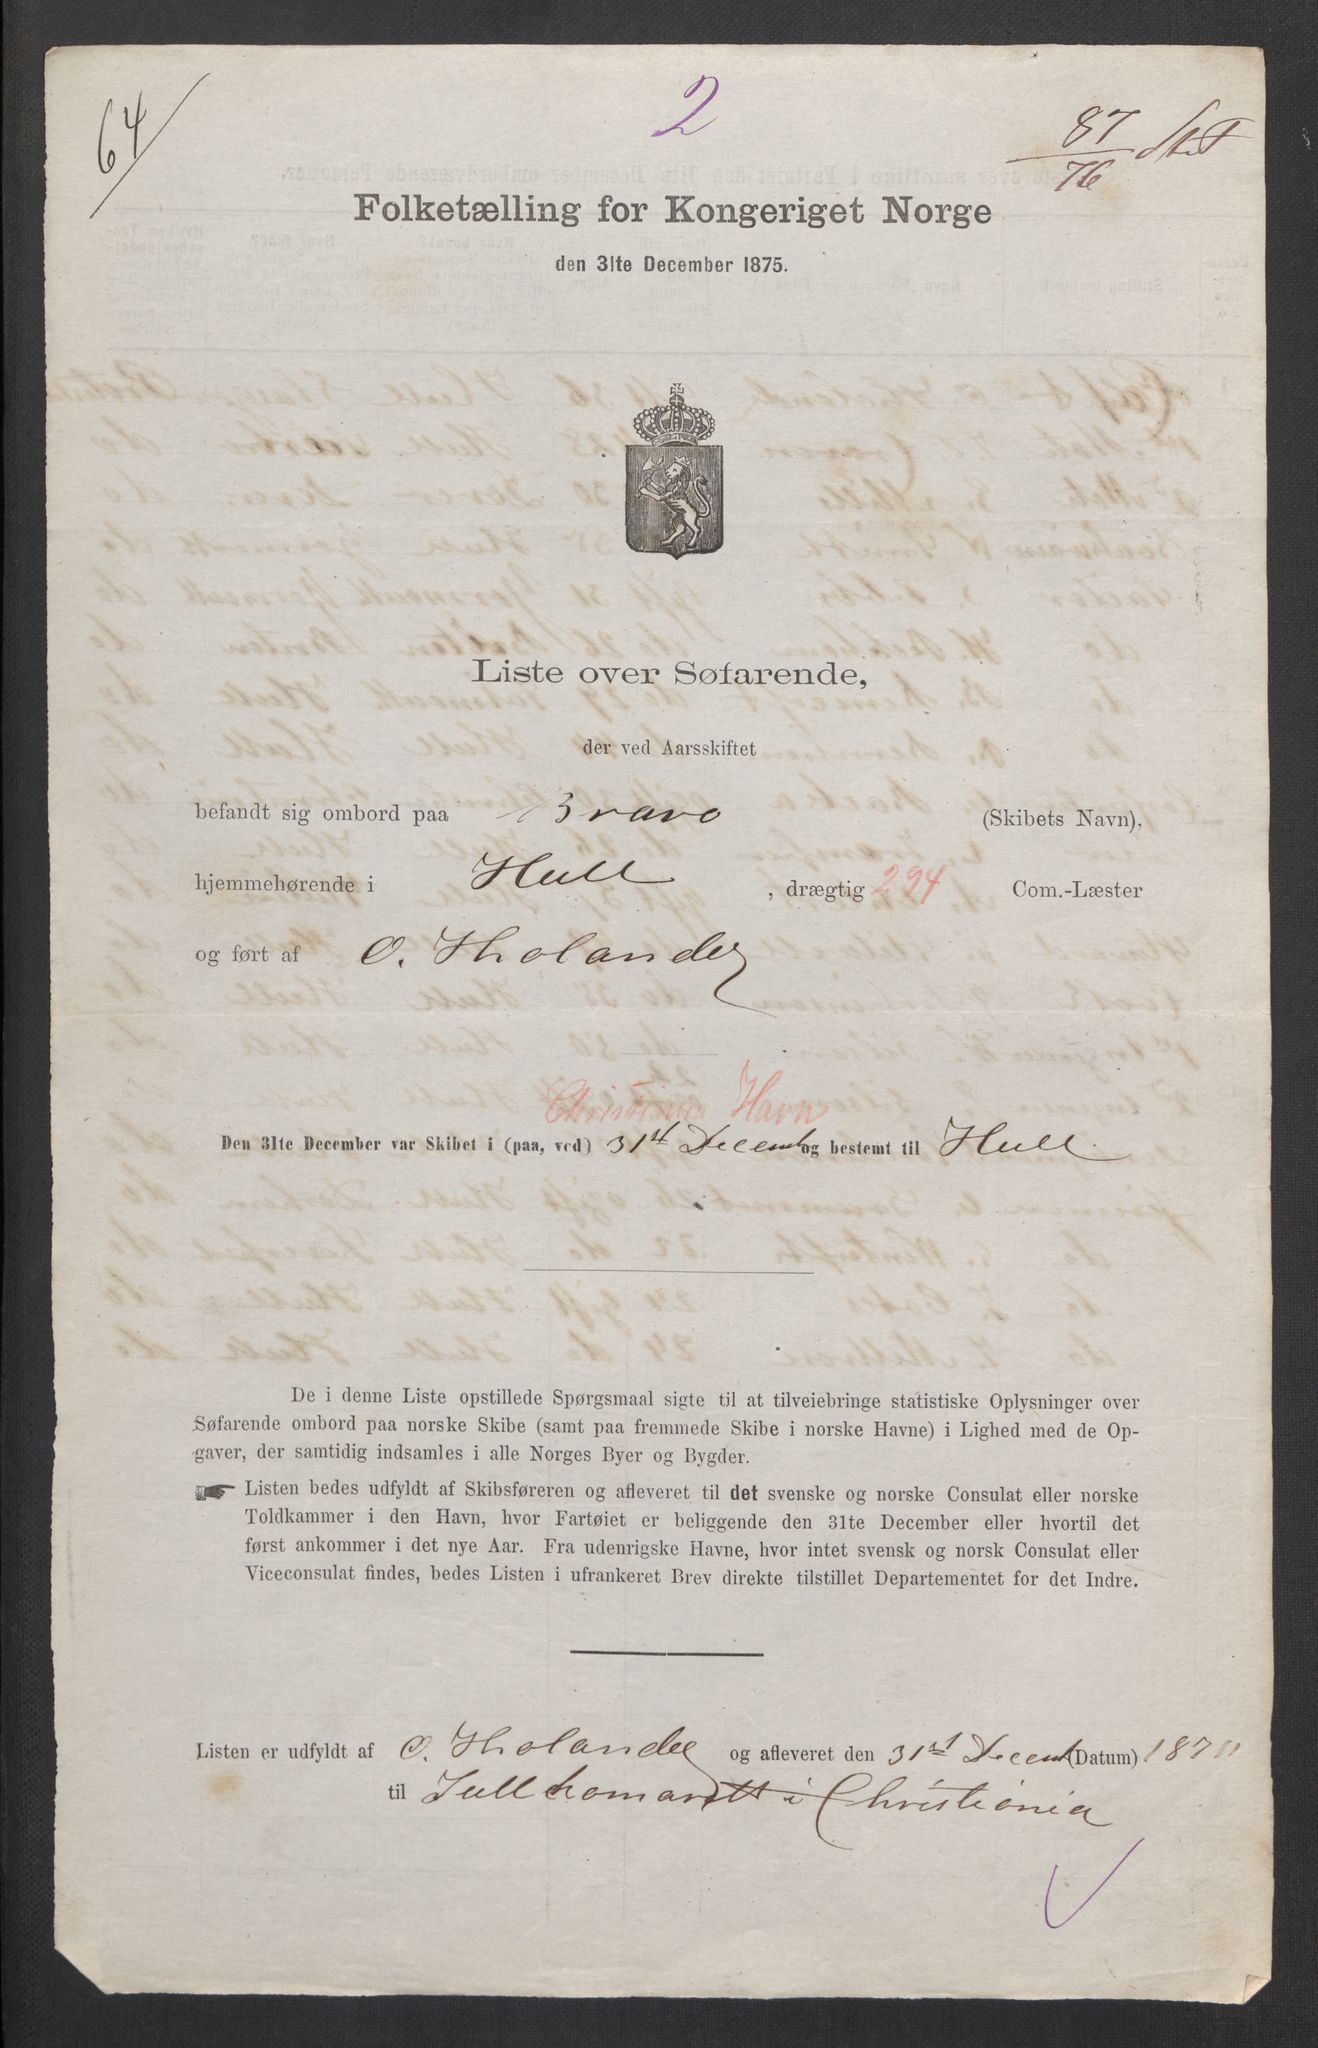 64/
2
87/76 Stat
Folketælling for Kongeriget Norge
den 31te December 1875.
Liste over Søfarende,
der ved Aarsskiftet
befandt sig ombord paa Bravo (Skibets Navn),
hjemmehørende i Hull, drægtig 294 Com.-Læster
og ført af O. Tholander
Christiania Havn
Den 31te December var Skibet i (paa, ved) 31st Decemb og bestemt til Hull.
De i denne Liste opstillede Spørgsmaal sigte til at tilveiebringe statistiske Oplysninger over
Søfarende ombord paa norske Skibe (samt paa fremmede Skibe i norske Havne) i Lighed med de Op-
gaver, der samtidig indsamles i alle Norges Byer og Bygder.
Listen bedes udfyldt af Skibsføreren og afleveret til det svenske og norske Consulat eller norske
Toldkammer i den Havn, hvor Fartøiet er beliggende den 31te December eller hvortil det
først ankommer i det nye Aar. Fra udenrigske Havne, hvor intet svensk og norsk Consulat eller
Viceconsulat findes, bedes Listen i ufrankeret Brev direkte tilstillet Departementet for det Indre.
Listen er udfyldt af O. Tholander og afleveret den 31st Decemb (Datum) 187
til i Christiania